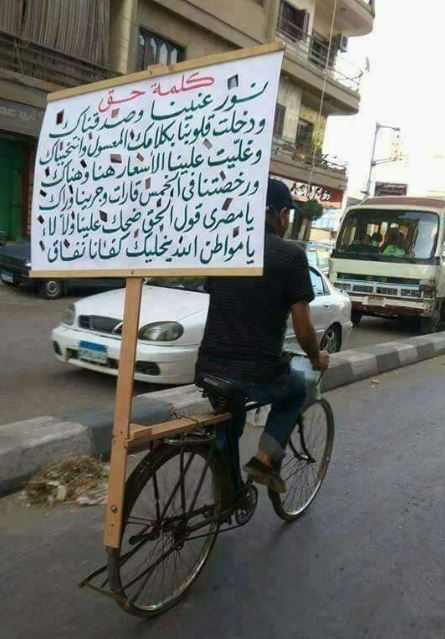 كلمة حق
نور عنينا وصدقناك
ودخلت قلوبنا بكلامك المعسول وانتخبناك
وغليت علينا الأسعار هنا وهناك
ورخصتنا في الخمس قارات وجرينا وراك
يا مصرى قول الحق ضحك علينا ولا لأ
يا مواطن الله يخليك كفانا نفاق